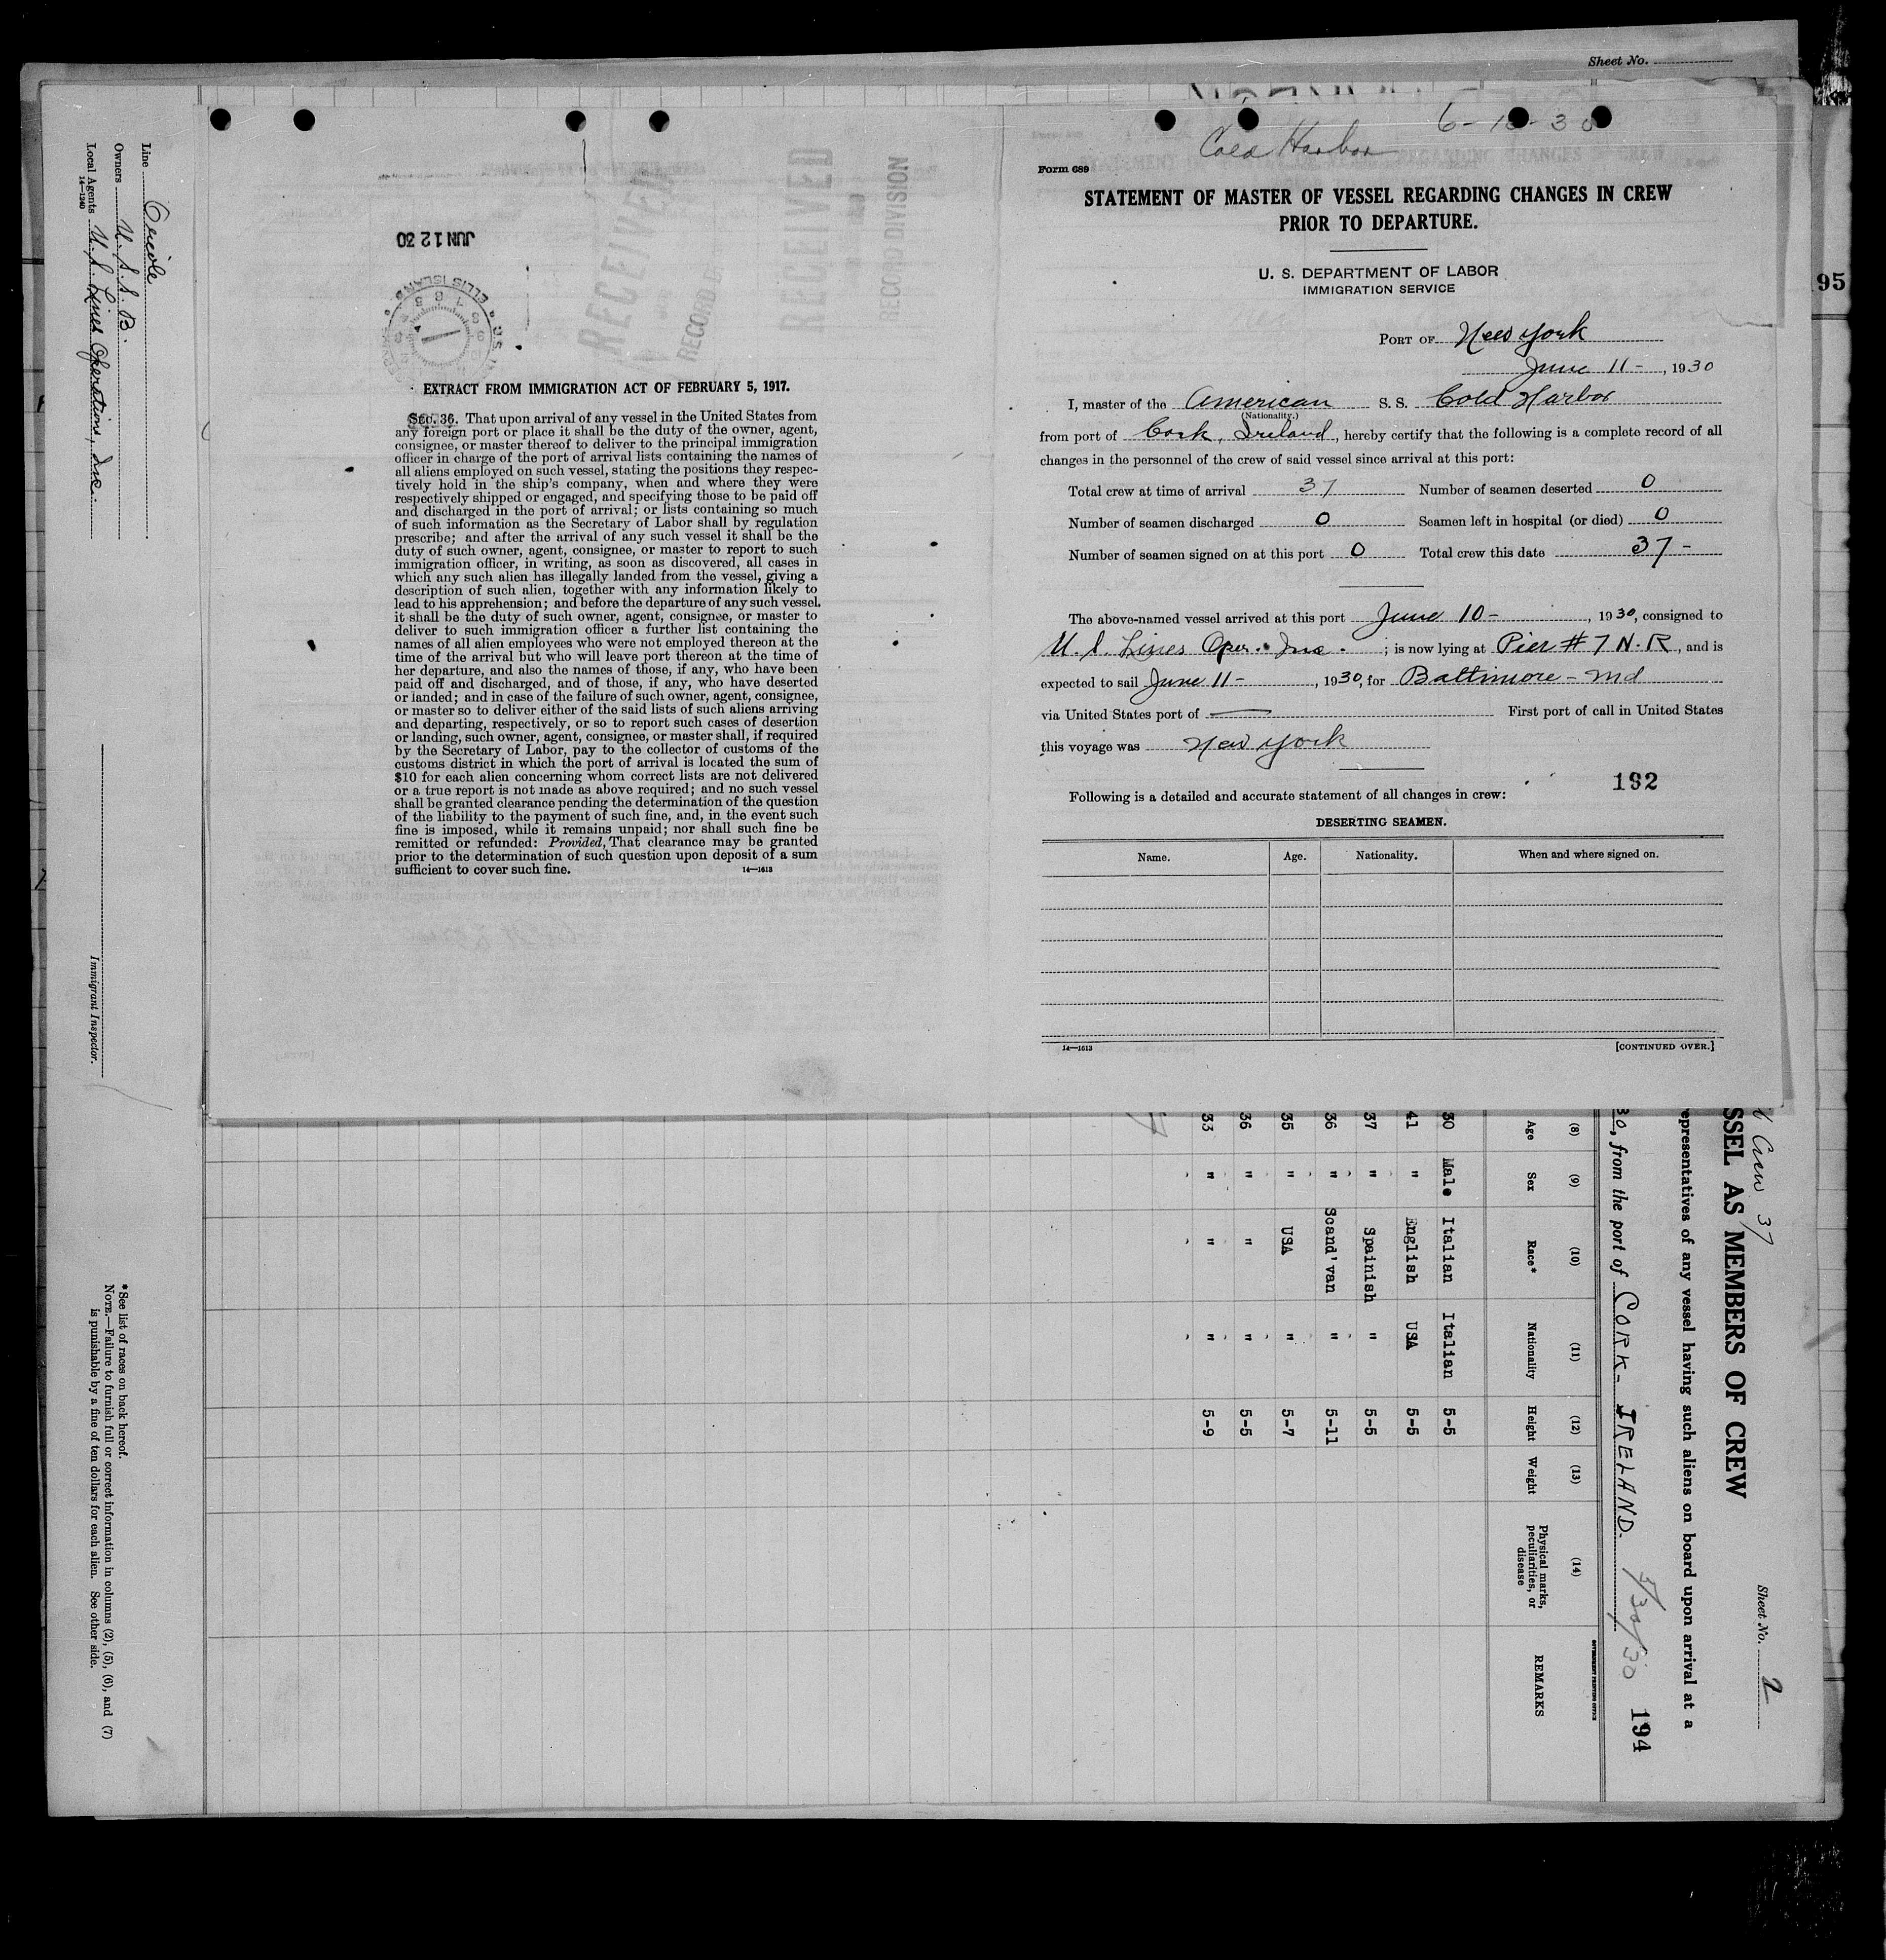 Sheet No.
6-10-30
Cold Harbor
Form 689
STATEMENT OF MASTER OF VESSEL REGARDING CHANGES IN CREW
PRIOR TO DEPARTURE.
U. S. DEPARTMENT OF LABOR
IMMIGRATION SERVICE
PORT OF New York
June 11 - , 1930
I, master of the American S. S. Cold Harbor
(Nationality.)
from port of Cork, Ireland, hereby certify that the following is a complete record of all
changes in the personnel of the crew of said vessel since arrival at this port:
Total crew at time of arrival 37 Number of seamen deserted 0
Number of seamen discharged 0 Seamen left in hospital (or died) 0
Number of seamen signed on at this port 0 Total crew this date 37 -
The above-named vessel arrived at this port June 10 - , 1930, consigned to
U. S. Lines Oper. Inc. ; is now lying at Pier # 7 N. R , and is
expected to sail June 11 - , 1930, for Baltimore - Md
via United States port of — First port of call in United States
this voyage was New York
192
Following is a detailed and accurate statement of all changes in crew:
DESERTING SEAMEN.
Name. Age. Nationality. When and where signed on.
14—1613 [CONTINUED OVER.]
JUN 12 30
ELLIS ISLAND
RECEIVED
RECORD DIVISION
EXTRACT FROM IMMIGRATION ACT OF FEBRUARY 5, 1917.
SEC. 36. That upon arrival of any vessel in the United States from
any foreign port or place it shall be the duty of the owner, agent,
consignee, or master thereof to deliver to the principal immigration
officer in charge of the port of arrival lists containing the names of
all aliens employed on such vessel, stating the positions they respec-
tively hold in the ship's company, when and where they were
respectively shipped or engaged, and specifying those to be paid off
and discharged in the port of arrival; or lists containing so much
of such information as the Secretary of Labor shall by regulation
prescribe; and after the arrival of any such vessel it shall be the
duty of such owner, agent, consignee, or master to report to such
immigration officer, in writing, as soon as discovered, all cases in
which any such alien has illegally landed from the vessel, giving a
description of such alien, together with any information likely to
lead to his apprehension; and before the departure of any such vessel
it shall be the duty of such owner, agent, consignee, or master to
deliver to such immigration officer a further list containing the
names of all alien employees who were not employed thereon at the
time of the arrival but who will leave port thereon at the time of
her departure, and also the names of those, if any, who have been
paid off and discharged, and of those, if any, who have deserted
or landed; and in case of the failure of such owner, agent, consignee,
or master so to deliver either of the said lists of such aliens arriving
and departing, respectively, or so to report such cases of desertion
or landing, such owner, agent, consignee, or master shall, if required
by the Secretary of Labor, pay to the collector of customs of the
customs district in which the port of arrival is located the sum of
$10 for each alien concerning whom correct lists are not delivered
or a true report is not made as above required; and no such vessel
shall be granted clearance pending the determination of the question
of the liability to the payment of such fine, and, in the event such
fine is imposed, while it remains unpaid; nor shall such fine be
remitted or refunded: Provided, That clearance may be granted
prior to the determination of such question upon deposit of a sum
sufficient to cover such fine. 14—1613
95
Crew 37
Sheet No. 2
SSEL AS MEMBERS OF CREW
epresentatives of any vessel having such aliens on board upon arrival at a
30, from the port of CORK - IRELAND. 5/30/30 194
(8) (9) (10) (11) (12) (13) (14)
Age Sex Race* Nationality Height Weight Physical marks, peculiarities, or disease REMARKS
30 Male Italian Italian 5-5
41 " English USA 5-5
37 " Spainish " 5-5
36 " Scand'van " 5-11
35 " USA " 5-7
36 " " " 5-5
33 " " " 5-9
Line Oriole
Owners U. S. S. B.
Local Agents U. S. Lines Operations, Inc.
14—1240
Immigrant Inspector.
*See list of races on back hereof.
NOTE.—Failure to furnish full or correct information in columns (2), (5), (6), and (7)
is punishable by a fine of ten dollars for each alien. See other side.